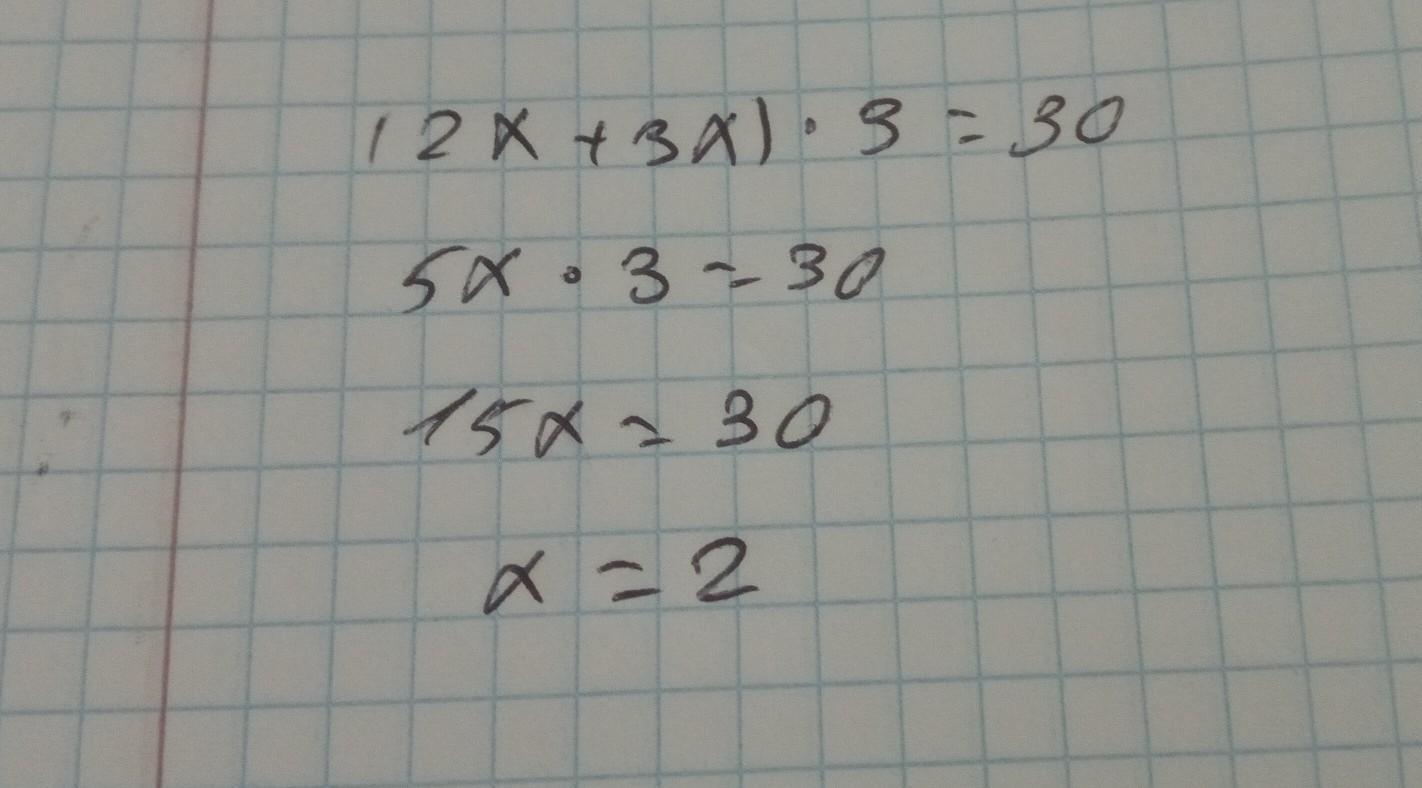 (2x + 3x) · 3 = 30
5x · 3 = 30
15x = 30
x = 2